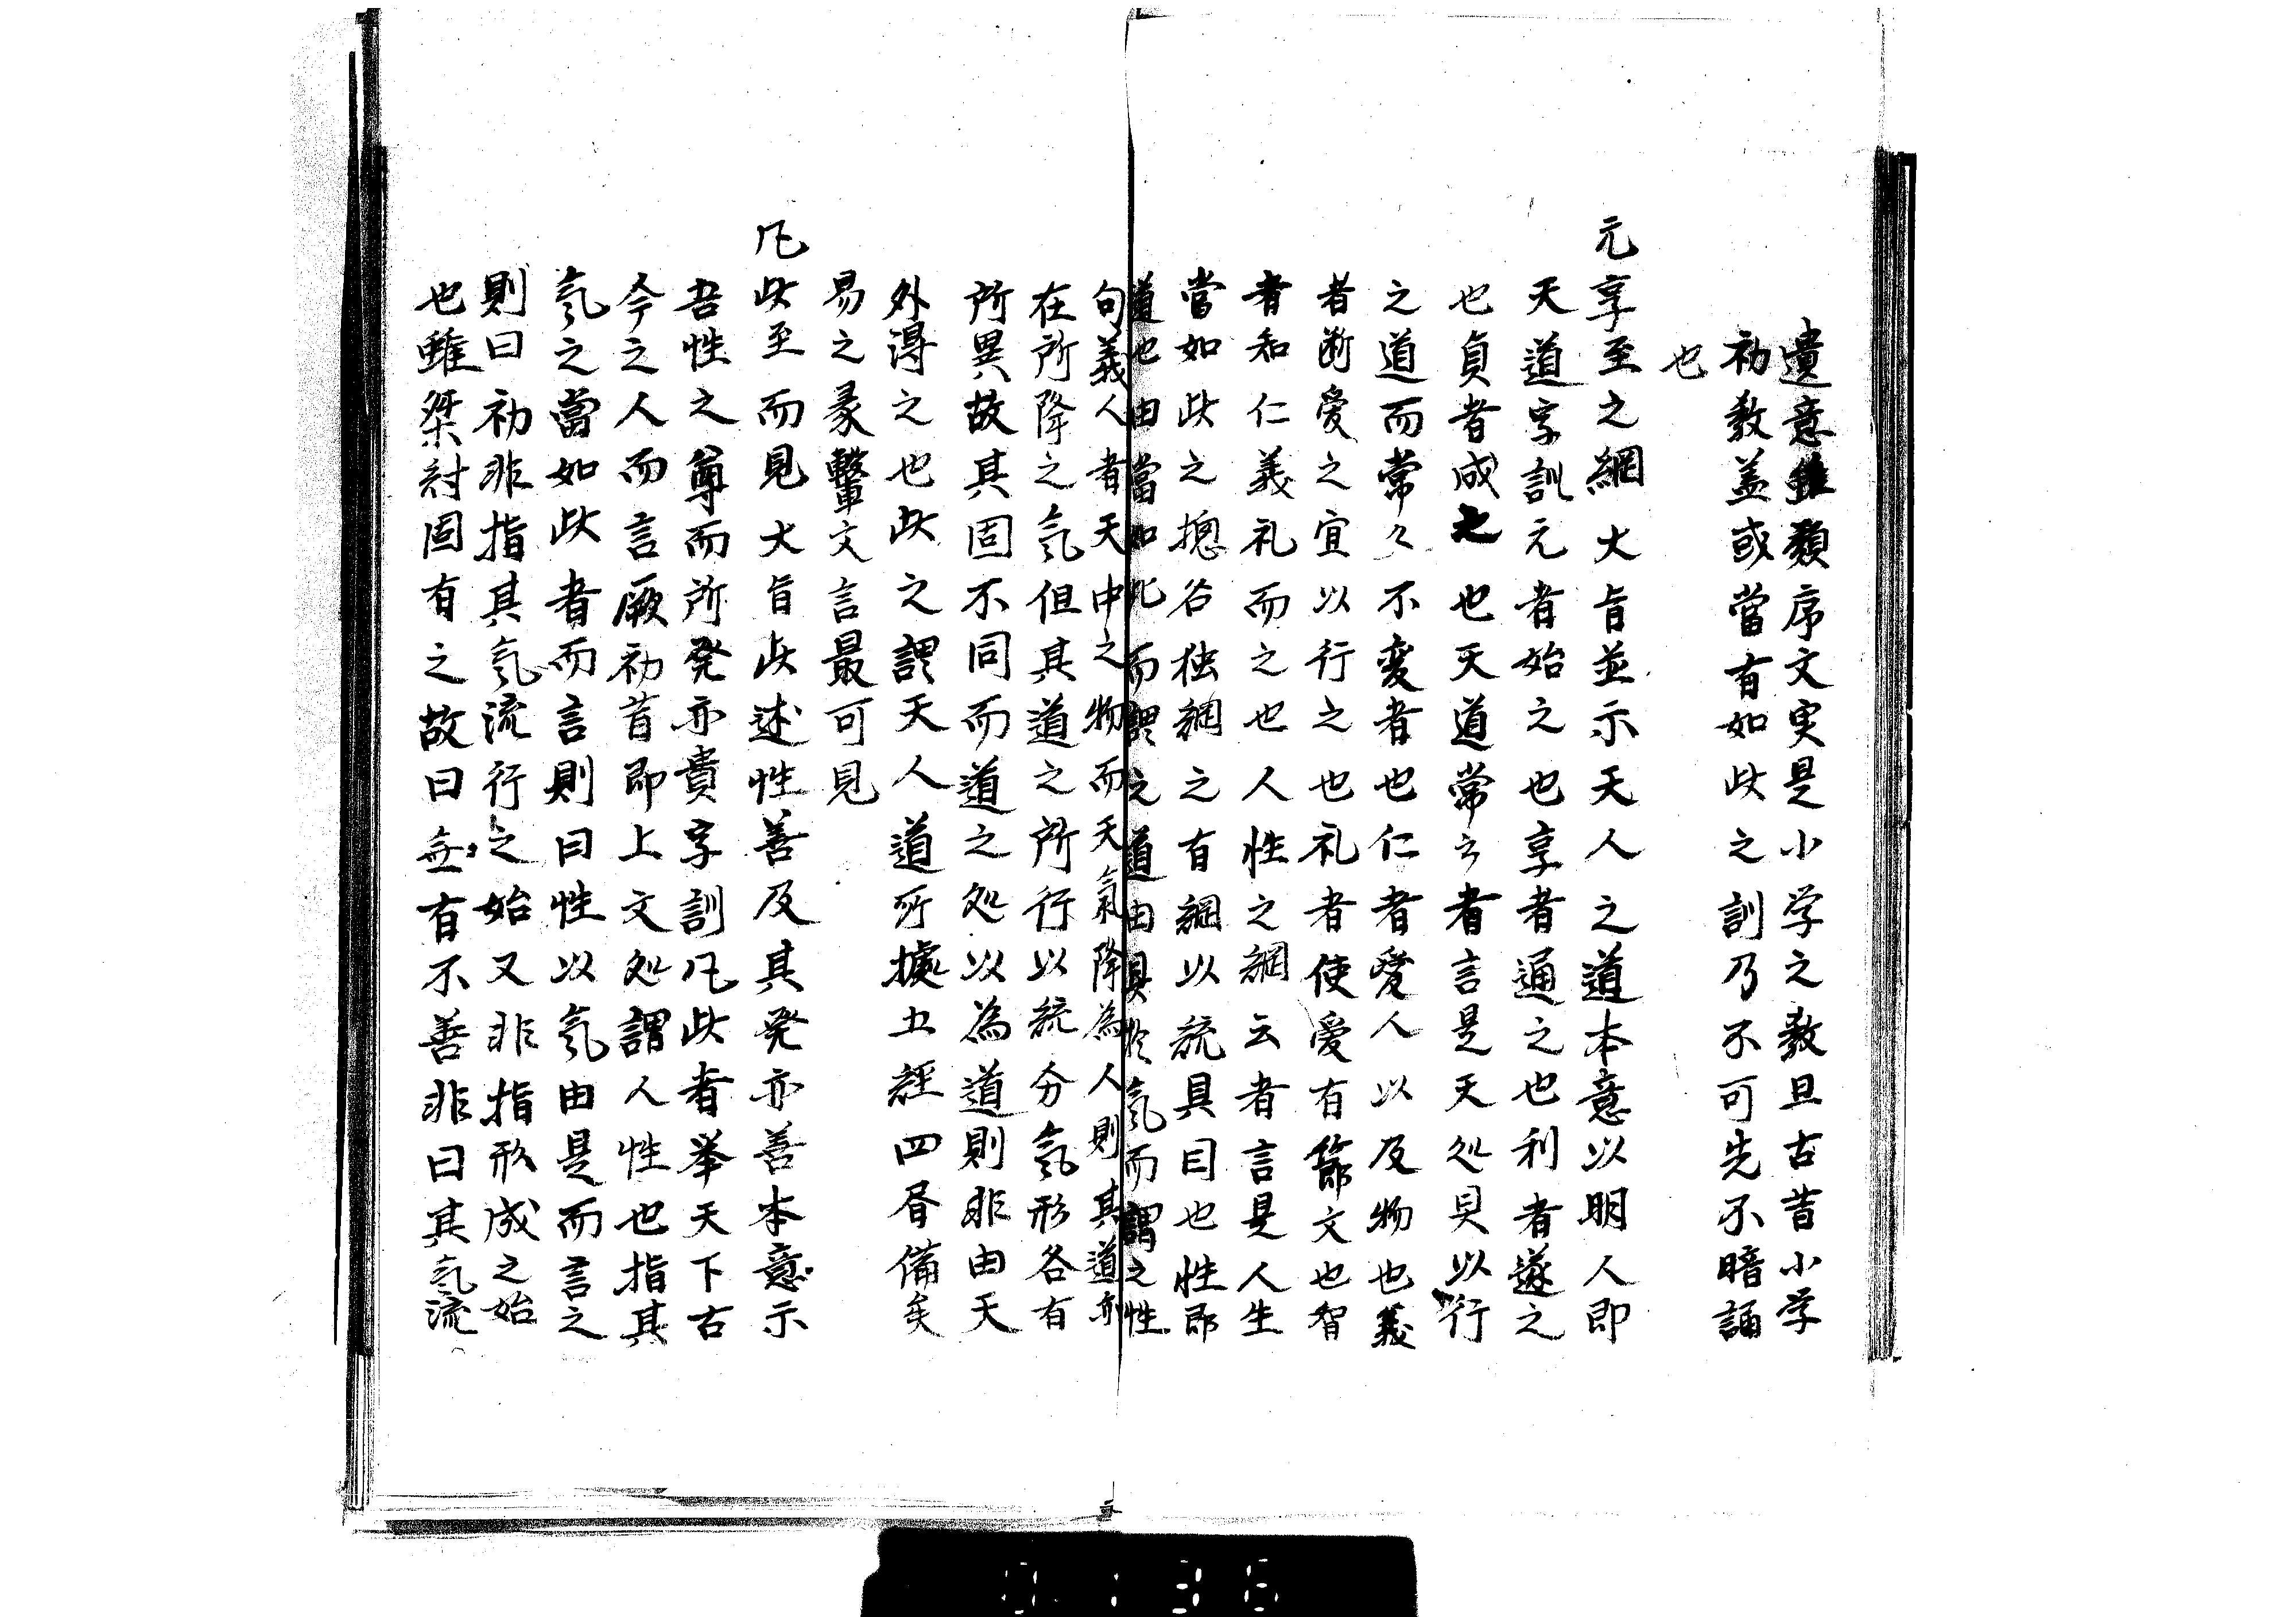 遺意雖類序文実是小学之教旦古昔小学
初教盖或當有如此之訓乃不可先不暗誦
也
元享至之綱大旨並示天人之道本意以明人即
天道字訓元者始之也享者通之也利者遂之
也貞者成之也天道常云者言是天処具以行
之道而常々不変者也仁者愛人以及物也義
者断愛之宜以行之也礼者使愛有節文也智
者知仁義礼而之也人性之綱云者言是人生
當如此之揔名独綱之有綱以統具目也性即
道也由當如此而謂之道由具於氣而謂之性
句義人者天中之物而天氣降為人則其道亦
在所降之気但其道之所行以統分氣形各有
所異故其固不同而道之処以為道則非由天
外得之也此之謂天人道所據五経四書備矣
易之彖繫文言最可見
凡此至而見大旨此述性善及其発亦善本意示
吾性之尊而所発亦貴字訓凡此者挙天下古
今之人而言厥初首即上文処謂人性也指其
氣之當如此者而言則曰性以氣由是而言之
則曰初非指其氣流行之始又非指形成之始
也雖桀紂固有之故曰無有不善非曰其氣流